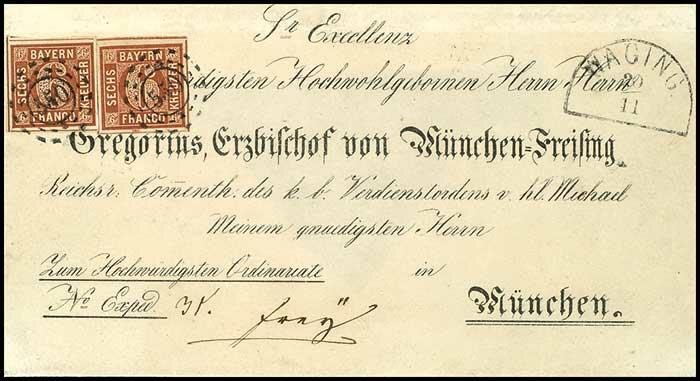 Sr Excellenz
BAYERN
SECHS
KREUZER
FRANCO
6
BAYERN
SECHS
KREUZER
FRANCO
6
WAGING.
20
11
digsten Hochwohlgebornen Herrn Herrn
Gregorius, Erzbischof von München-Freising
Reichsr: Com̅enth: des k. b. Verdienstordens v. hl. Michael
Meinem gnaedigsten Herrn
Zum Hochwürdigsten Ordinariate in
No Exped.
frey
München.